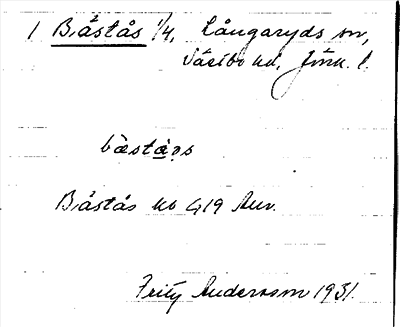 1 Båstås 1/4, Långaryds sn,
Västbo hd, Jönk. l.
bɷstås
Båstås hd 419 Anv.
Fritz Andersson 1931.